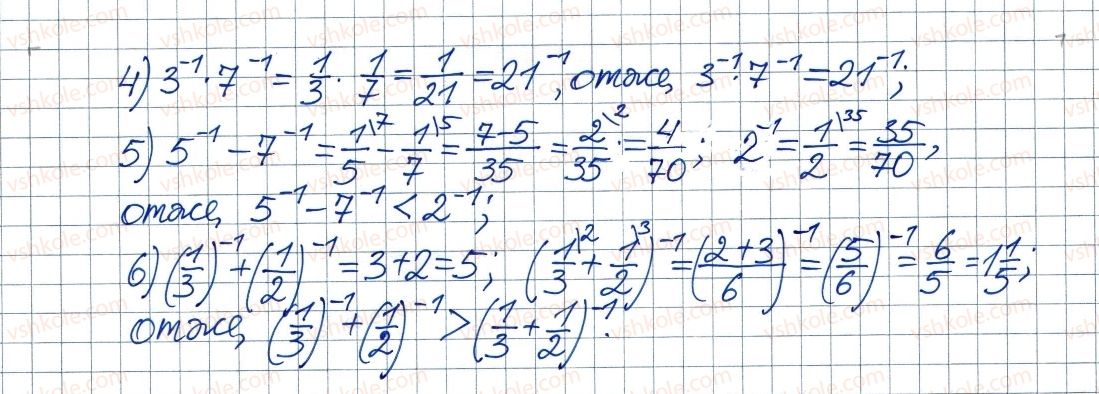 4) 3⁻¹·7⁻¹ = 1/3 · 1/7 = 1/21 = 21⁻¹, отже, 3⁻¹·7⁻¹ = 21⁻¹;
5) 5⁻¹ − 7⁻¹ = 1\⁷/5 − 1\⁵/7 = (7−5)/35 = 2\²/35 = 4/70; 2⁻¹ = 1\³⁵/2 = 35/70,
отже, 5⁻¹ − 7⁻¹ < 2⁻¹;
6) (1/3)⁻¹ + (1/2)⁻¹ = 3 + 2 = 5; (1\²/3 + 1\³/2)⁻¹ = ((2+3)/6)⁻¹ = (5/6)⁻¹ = 6/5 = 1 1/5;
отже, (1/3)⁻¹ + (1/2)⁻¹ > (1/3 + 1/2)⁻¹.